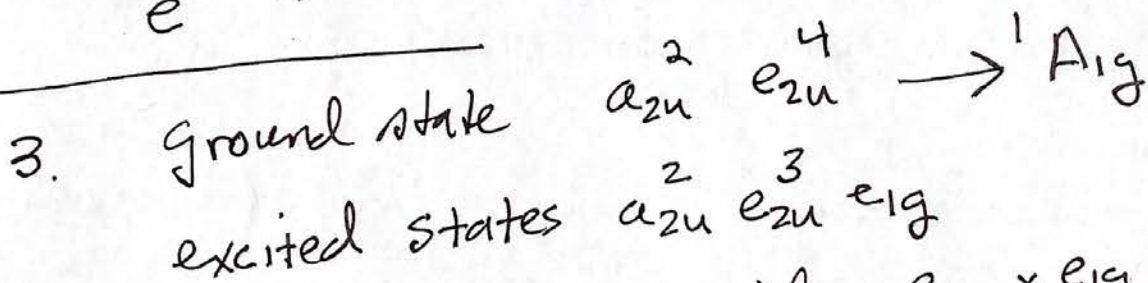 e
3. Ground state a₂ᵤ² e₂ᵤ⁴ → ¹A₁g
excited states a₂ᵤ² e₂ᵤ³ e₁g
x e₁g